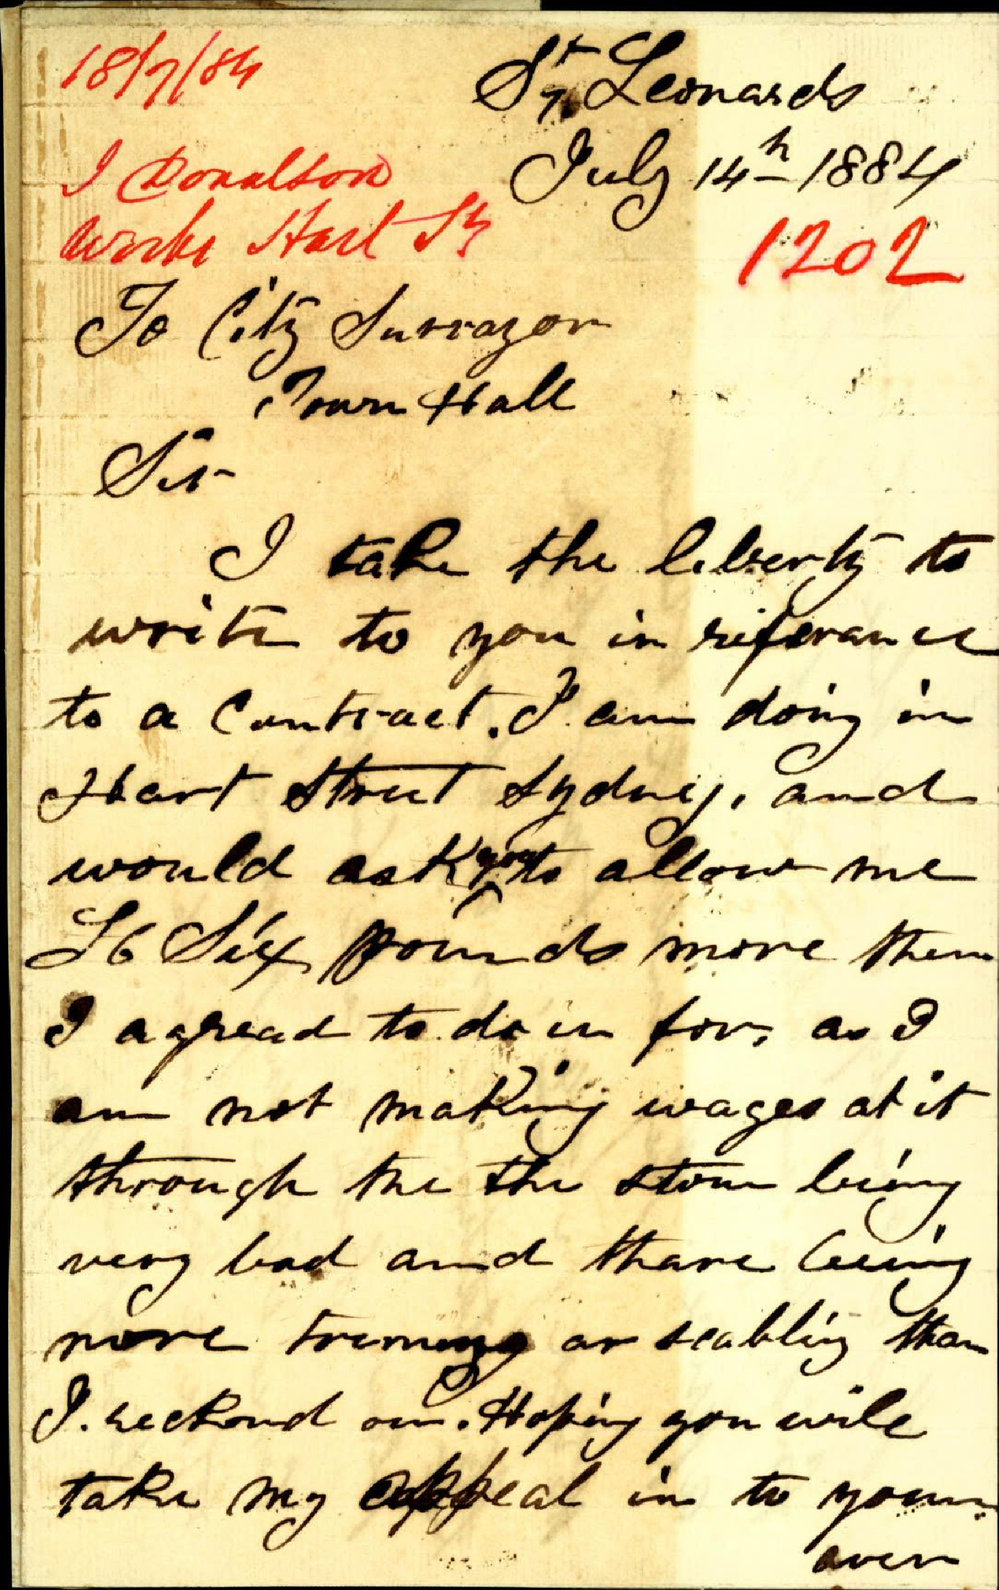 18/7/84
St Leonards
July 14th 1884
J Donaldson
Works Hart St
1202
To City Survayor
Town Hall
Sir
I take the liberty to
write to you in referance
to a Contract. I am doing in
Hart Street Sydney, and
would ask you to allow me
£6 Six pounds more then
I agread to do in for, as I
am not making wages at it
through the the stone being
very bad and thare being
more treming or scabling than
I. reckond on. Hoping you will
take my appeal in to your
over